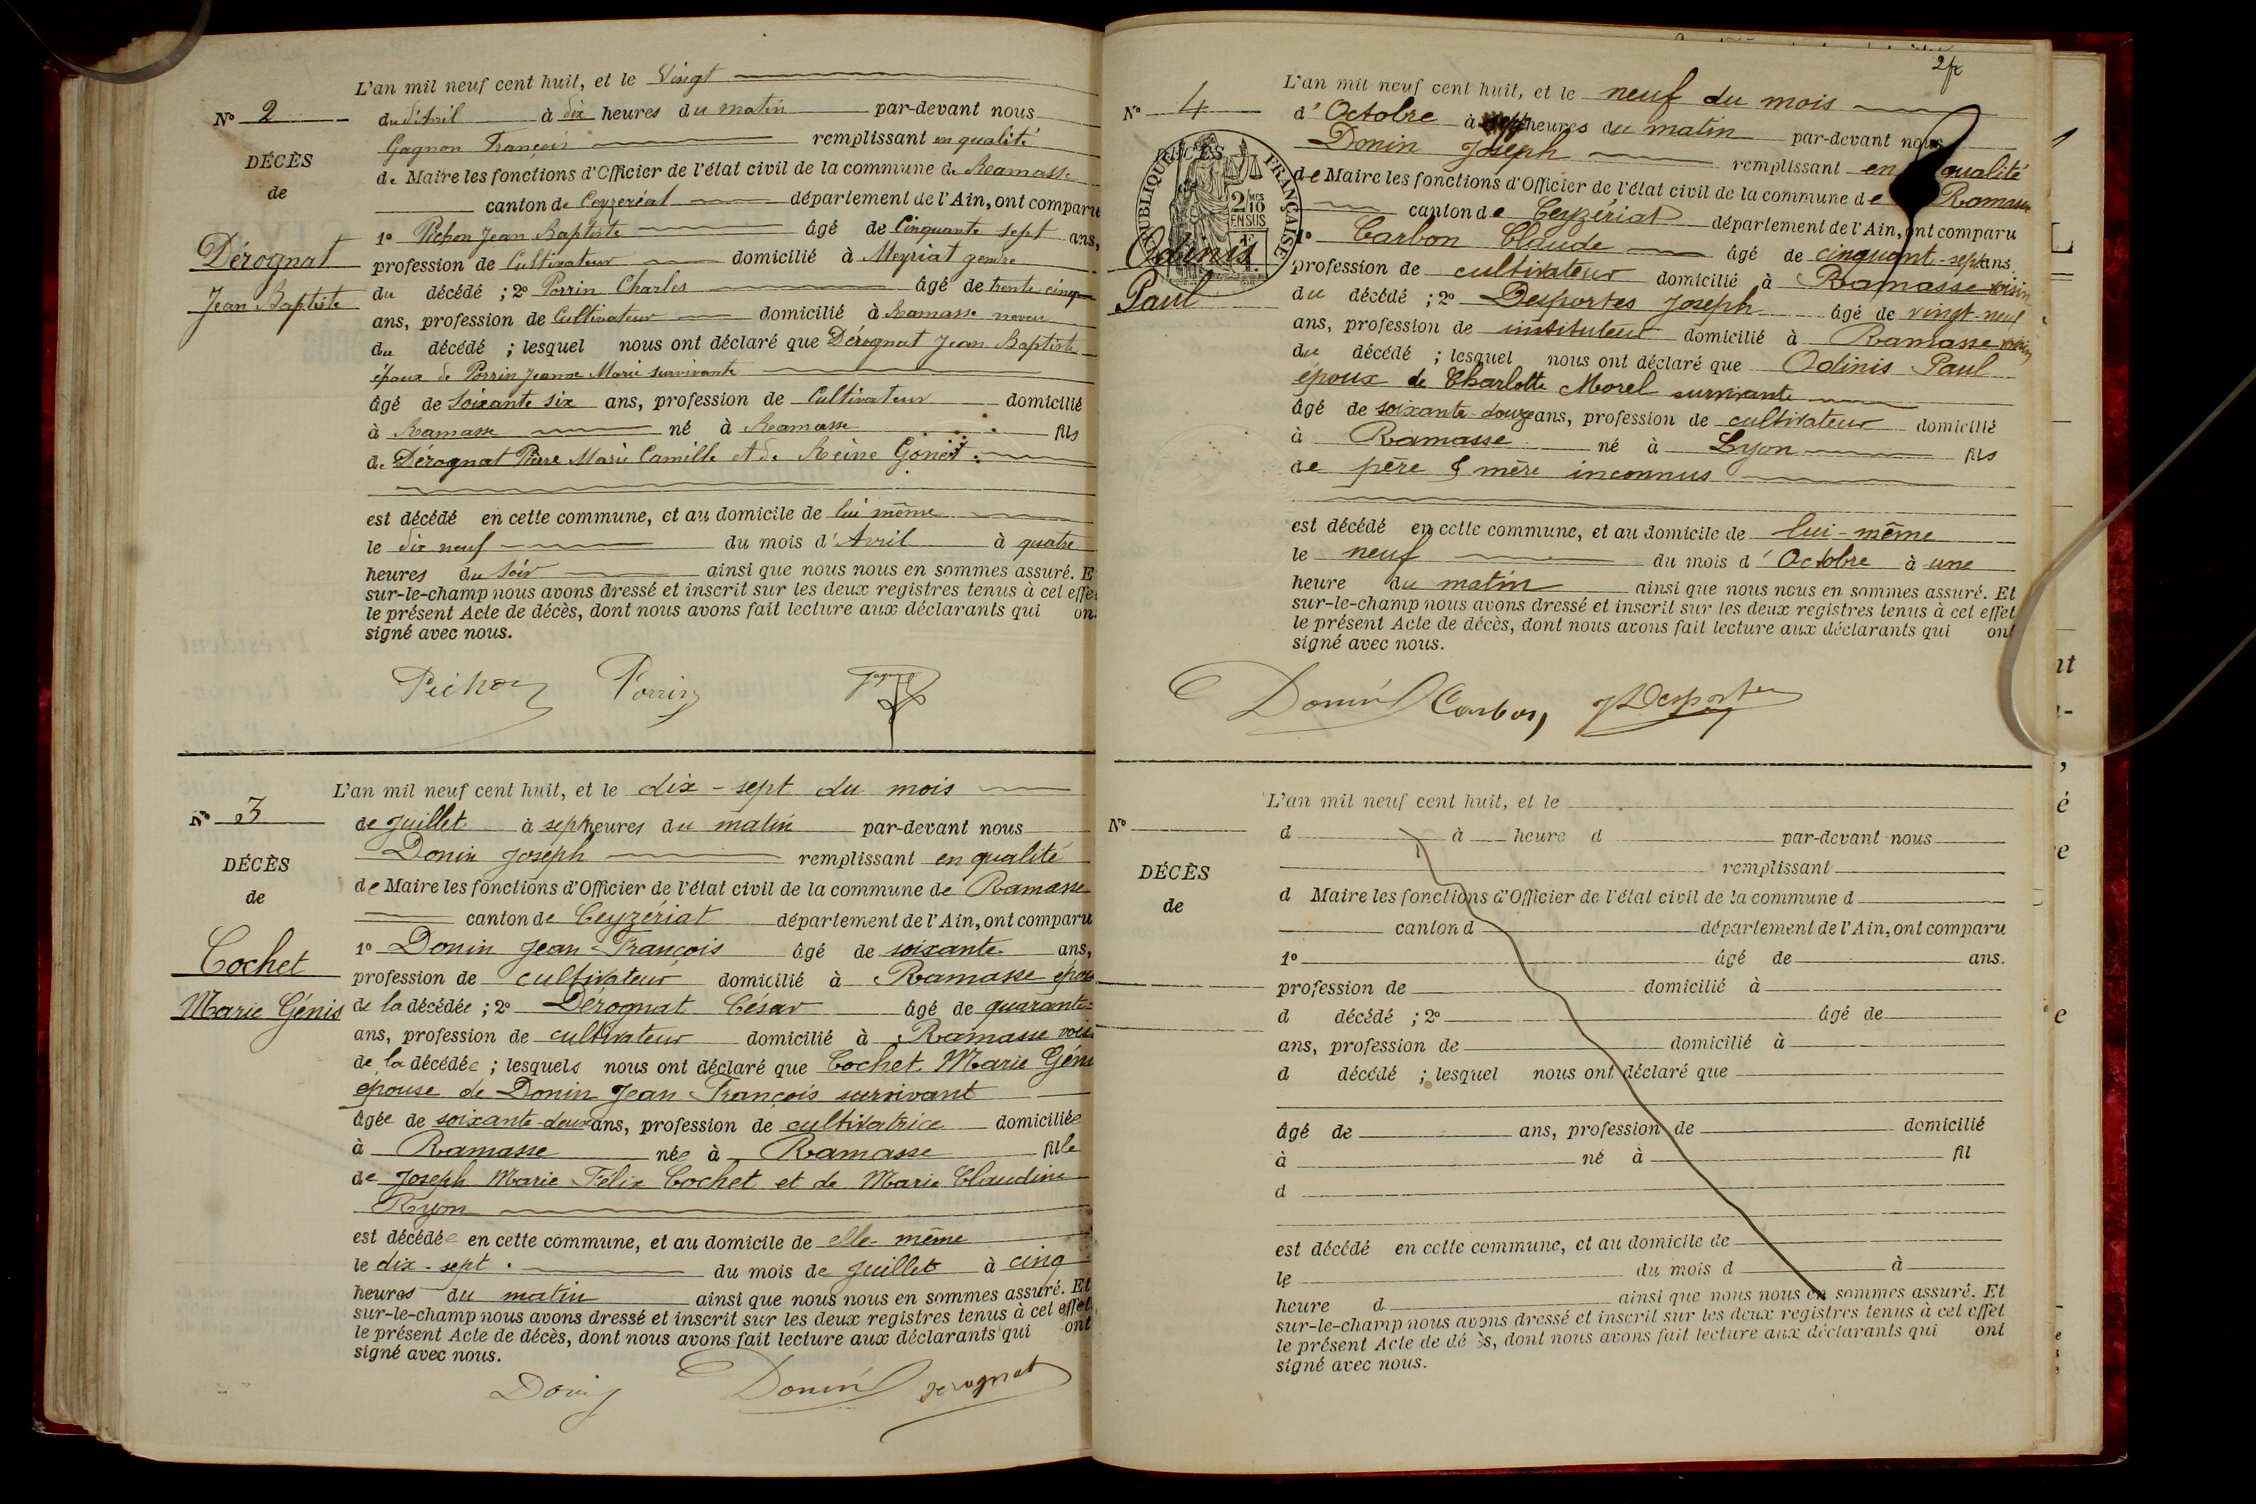 L'an mil neuf cent huit, et le Vingt
No 2
du d'Avril à dix heures du matin par-devant nous
Gagnon François remplissant en qualité
DÉCÈS
de Maire les fonctions d'Officier de l'état civil de la commune de Ramasse
de
canton de Ceyzeriat département de l'Ain, ont comparu
1o Pichon Jean Baptiste âgé de Cinquante sept ans,
Dérognat
profession de Cultivateur domicilié à Meyriat gendre
Jean Baptiste
du décédé ; 2o Porrin Charles âgé de trente cinq
ans, profession de Cultivateur domicilié à Ramasse neveu
du décédé ; lesquel nous ont déclaré que Dérognat Jean Baptiste
époux de Porrin Jeanne Marie survivante
âgé de Soixante six ans, profession de Cultivateur domicilié
à Ramasse né à Ramasse fils
de Dérognat Pierre Marie Camille et de Reine Gonet
est décédé en cette commune, et au domicile de lui même
le dix neuf du mois d'Avril à quatre
heures du Soir ainsi que nous nous en sommes assuré. E
sur-le-champ nous avons dressé et inscrit sur les deux registres tenus à cet effe
le présent Acte de décès, dont nous avons fait lecture aux déclarants qui on
signé avec nous.
Pichon Porrin
L'an mil neuf cent huit, et le dix-sept du mois
No 3
de Juillet à sept heures du matin par-devant nous
Donin Joseph remplissant en qualité
DÉCÈS
de Maire les fonctions d'Officier de l'état civil de la commune de Ramasse
de
canton de Ceyzériat département de l'Ain, ont comparu
Cochet
1o Donin Jean-François âgé de soixante ans,
profession de cultivateur domicilié à Ramasse époux
Marie Génis
de la décédée ; 2o Dérognat César âgé de quarante-
ans, profession de cultivateur domicilié à Ramasse vois
de la décédée ; lesquels nous ont déclaré que Cochet Marie Géni
épouse de Donin Jean François survivant
âgée de soixante-deux ans, profession de cultivatrice domiciliée
à Ramasse née à Ramasse fille
de Joseph Marie Félix Cochet et de Marie Claudine
Ryon
est décédée en cette commune, et au domicile de elle-même
le dix-sept du mois de Juillet à cinq
heures du matin ainsi que nous nous en sommes assuré. Et
sur-le-champ nous avons dressé et inscrit sur les deux registres tenus à cet effet
le présent Acte de décès, dont nous avons fait lecture aux déclarants qui ont
signé avec nous.
Donin Donin Derognat
2fr
L'an mil neuf cent huit, et le neuf du mois
No 4
d'Octobre à heures du matin par-devant nous
Donin Joseph remplissant en qualité
RÉPUBLIQUE FRANÇAISE
2/10 EN SUS
de Maire les fonctions d'Officier de l'état civil de la commune de Ramasse
canton de Ceyzériat département de l'Ain, ont comparu
Odinis
1o Carbon Claude âgé de cinquante-sept ans
Paul
profession de cultivateur domicilié à Ramasse voisin
du décédé ; 2o Desportes Joseph âgé de vingt-neuf
ans, profession de instituteur domicilié à Ramasse voisin
du décédé ; lesquel nous ont déclaré que Odinis Paul
époux de Charlotte Morel survivante
âgé de soixante-douze ans, profession de cultivateur domicilié
à Ramasse né à Lyon fils
de père & mère inconnus
est décédé en cette commune, et au domicile de lui-même
le neuf du mois d'Octobre à une
heure du matin ainsi que nous nous en sommes assuré. Et
sur-le-champ nous avons dressé et inscrit sur les deux registres tenus à cet effet
le présent Acte de décès, dont nous avons fait lecture aux déclarants qui ont
signé avec nous.
Donin Carbon J Desportes
L'an mil neuf cent huit, et le
No
d à heure d par-devant nous
remplissant
DÉCÈS
d Maire les fonctions d'Officier de l'état civil de la commune d
de
canton d département de l'Ain, ont comparu
1o âgé de ans.
profession de domicilié à
d décédé ; 2o âgé de
ans, profession de domicilié à
d décédé ; lesquel nous ont déclaré que
âgé de ans, profession de domicilié
à né à fil
d
est décédé en cette commune, et au domicile de
le du mois d à
heure d ainsi que nous nous en sommes assuré. Et
sur-le-champ nous avons dressé et inscrit sur les deux registres tenus à cet effet
le présent Acte de décès, dont nous avons fait lecture aux déclarants qui ont
signé avec nous.